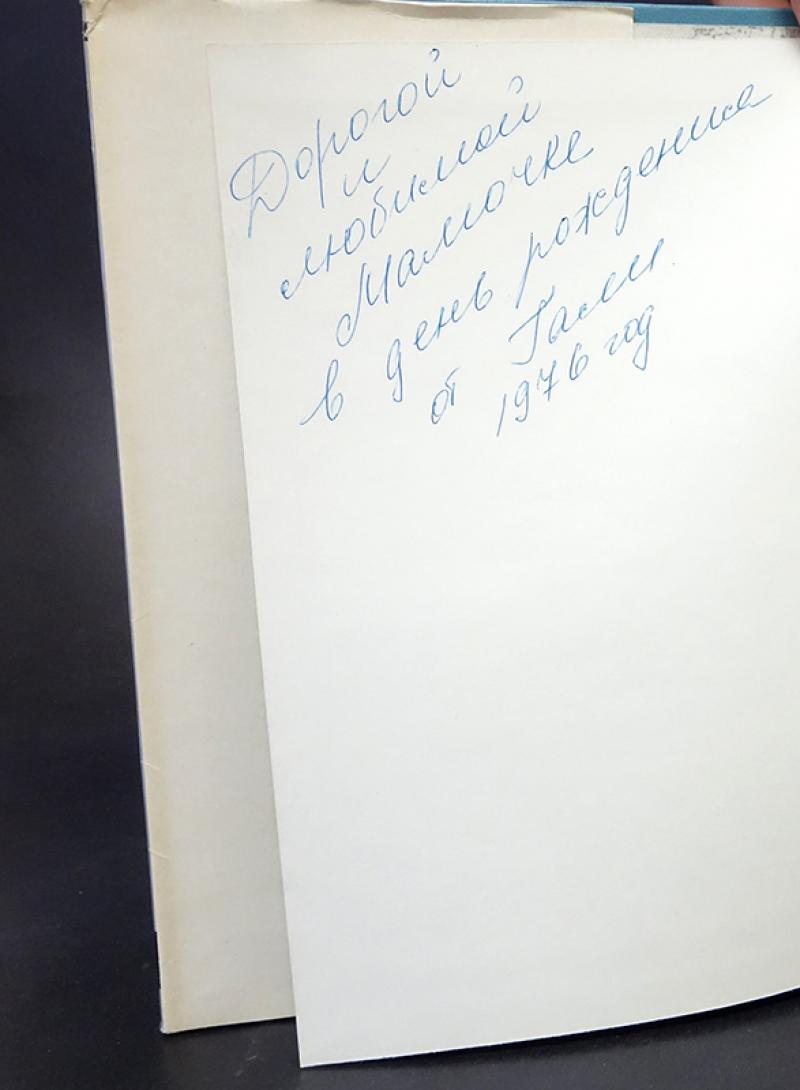 Дорогой
и
любимой
Мамочке
в день рождения
от Гали.
1976 год